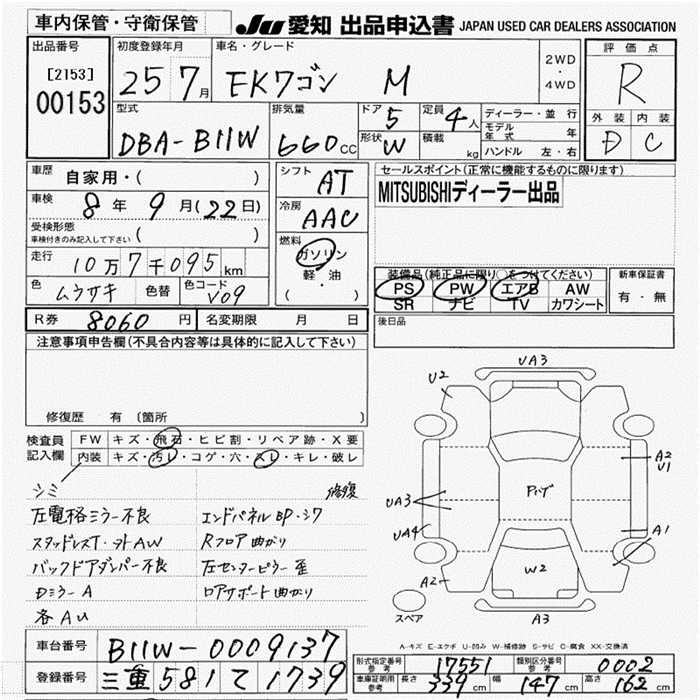 車内保管・守衛保管
JU 愛知 出品申込書 JAPAN USED CAR DEALERS ASSOCIATION
出品番号
[2153]
00153
初度登録年月
25 7月
車名・グレード
EKワゴン M
2WD
・
4WD
評価点
R
外装 内装
D C
型式
DBA-B11W
排気量
660cc
ドア 5
形状 W
定員 4人
積載 kg
ディーラー・並行
モデル年式 年
ハンドル 左・右
車歴 自家用・( )
車検 8年9月(22日)
受検形態
車検付きのみ記入して下さい ( )
走行 10万7千095km
色 ムラサキ 色替 色コード V09
シフト AT
冷房 AAC
燃料
ガソリン
軽・油
( ・ )
セールスポイント(正常に機能するものに限ります)
MITSUBISHIディーラー出品
装備品(純正品に限り○をつけてください)
PS PW エアB AW
SR ナビ TV カワシート
新車保証書
有・無
後日品
R券 8060円 名変期限 月 日
注意事項申告欄(不具合内容等は具体的に記入して下さい)
修復歴 有 〔箇所 〕
検査員記入欄
FW キズ・飛石・ヒビ割・リペア跡・X要
内装 キズ・汚レ・コゲ・穴・スレ・キレ・破レ
シミ
修復
左電格ミラー不良 エンドパネルBP・シワ
スタッドレスT・外AW Rフロア曲がり
バックドアダンパー不良 左センターピラー歪
DミラーA ロアサポート曲がり
各AU
UA3
U2
A2
U1
UA3
UA4
A1
A2
W2
A3
スペア
A-キズ E-エクボ U-凹み W-補修跡 S-サビ C-腐食 XX-交換済
車台番号 B11W-0009137
登録番号 三重 581 て 1739
形式指定番号 参考 17551 類別区分番号 参考 0002
車庫証明用 参考 長さ 339cm 幅 147cm 高さ 162cm